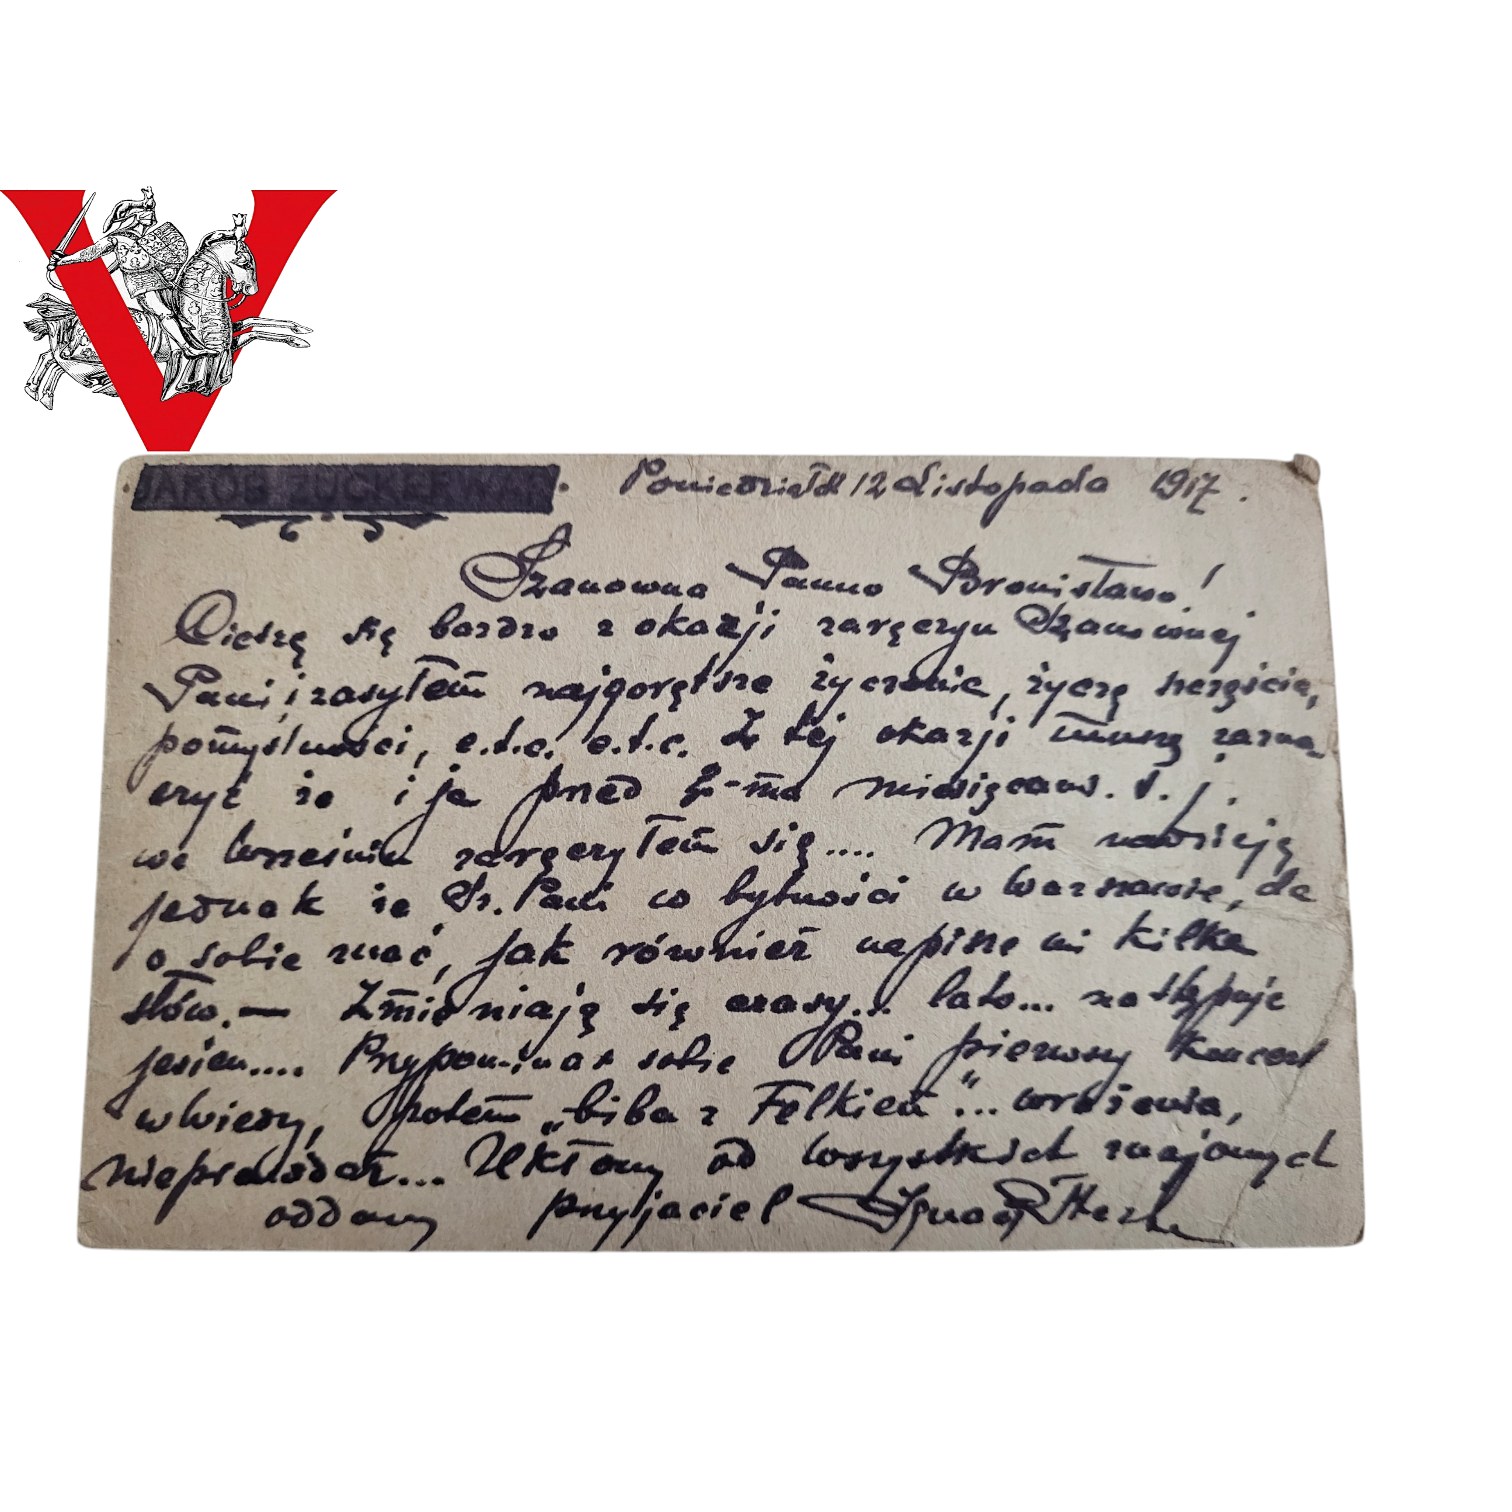 JAKÓB ZUCKERWAR.
Poniedziałek 12 Listopada 1917.
Szanowna Panno Bronisławo!
Cieszę się bardzo z okazji zaręczyn Szanownej
Pani, i zasyłam najgorętsze życzenia, życzę szczęścia,
pomyślności, e.t.c. e.t.c. Z tej okazji muszę zazna-
czyć że i ja przed 2-ma miesiącami. t. j.
we Wrześniu zaręczyłem się.... Mam nadzieję
jednak że Sz. Pani po bytności w Warszawie, da
o sobie znać, jak również napisze mi kilka
słów. — Zmieniają się czasy... lato... następuje
jesień.... Przypomina sobie Pani pierwszy koncert
wówczas, potem „biba z Felkiem"... wrażenia,
nieprawdaż... Ukłony od wszystkich znajomych
oddany przyjaciel Ignacy